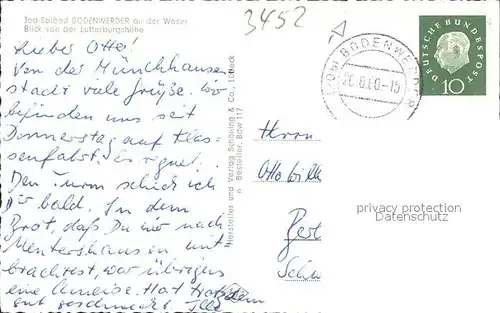 Jod-Solbad BODENWERDER an der Weser
Blick von der Luttelburgshöhe
3452
Lieber Otto!
Von der Münchhausen
stadt viele Grüße. Wir
befinden uns seit
Donnerstag auf Klas-
senfahrt. Es regnet!
Den Turm schick ich
Dir bald. In dem
Brot, daß Du mir nach
mit
brachtest, war übrigens
eine Ameise. Hat trotzdem
gut geschmeckt.
Hersteller und Verlag Schöning & Co., Lübeck
Bestellnr. Bdw 117
BODENWERDER
DEUTSCHE BUNDESPOST
10
Herrn
Otto
privacy protection
Datenschutz